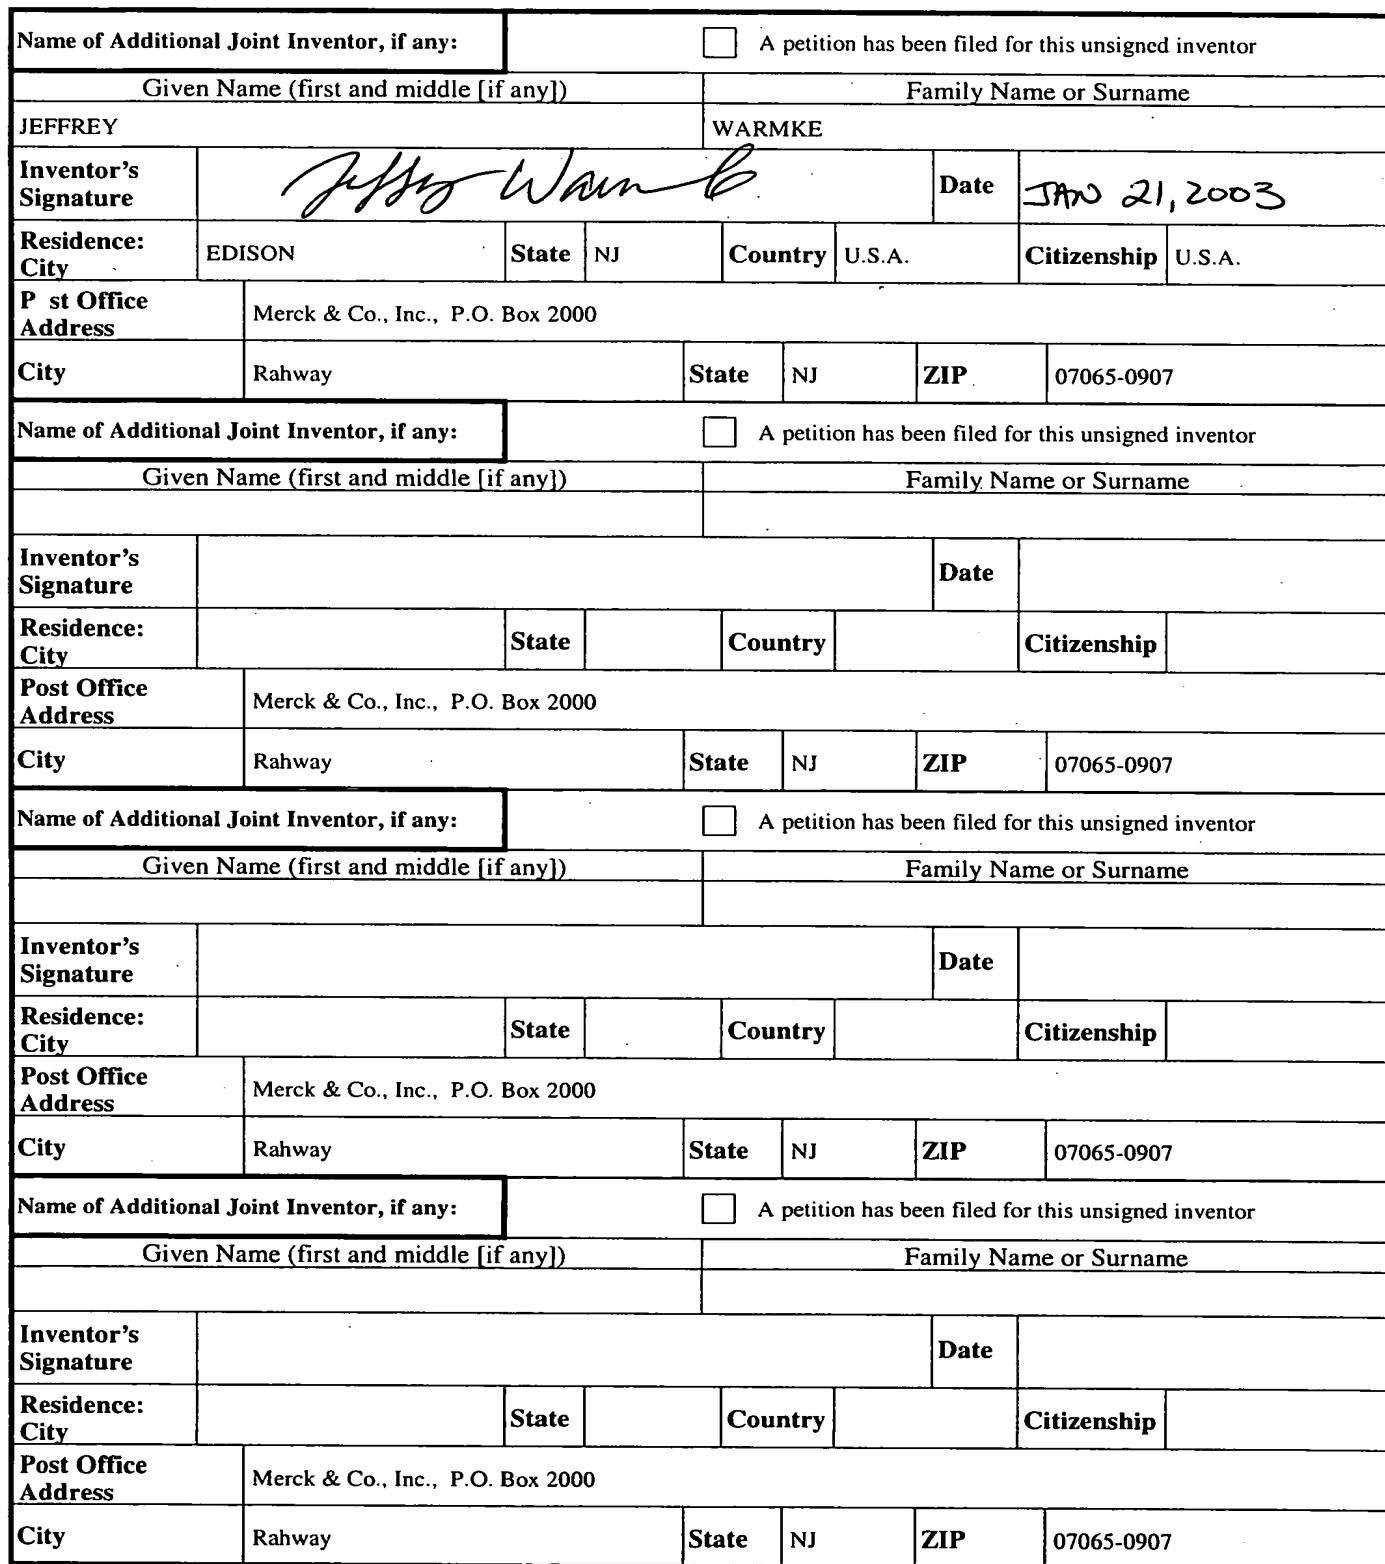 Name of Additional Joint Inventor, if any: A petition has been filed for this unsigned inventor
Given Name (first and middle [if any]) Family Name or Surname
JEFFREY WARMKE
Inventor's Signature Jeffrey Warmke Date JAN 21, 2003
Residence: City EDISON State NJ Country U.S.A. Citizenship U.S.A.
P st Office Address Merck & Co., Inc., P.O. Box 2000
City Rahway State NJ ZIP 07065-0907
Name of Additional Joint Inventor, if any: A petition has been filed for this unsigned inventor
Given Name (first and middle [if any]) Family Name or Surname
Inventor's Signature Date
Residence: City State Country Citizenship
Post Office Address Merck & Co., Inc., P.O. Box 2000
City Rahway State NJ ZIP 07065-0907
Name of Additional Joint Inventor, if any: A petition has been filed for this unsigned inventor
Given Name (first and middle [if any]) Family Name or Surname
Inventor's Signature Date
Residence: City State Country Citizenship
Post Office Address Merck & Co., Inc., P.O. Box 2000
City Rahway State NJ ZIP 07065-0907
Name of Additional Joint Inventor, if any: A petition has been filed for this unsigned inventor
Given Name (first and middle [if any]) Family Name or Surname
Inventor's Signature Date
Residence: City State Country Citizenship
Post Office Address Merck & Co., Inc., P.O. Box 2000
City Rahway State NJ ZIP 07065-0907